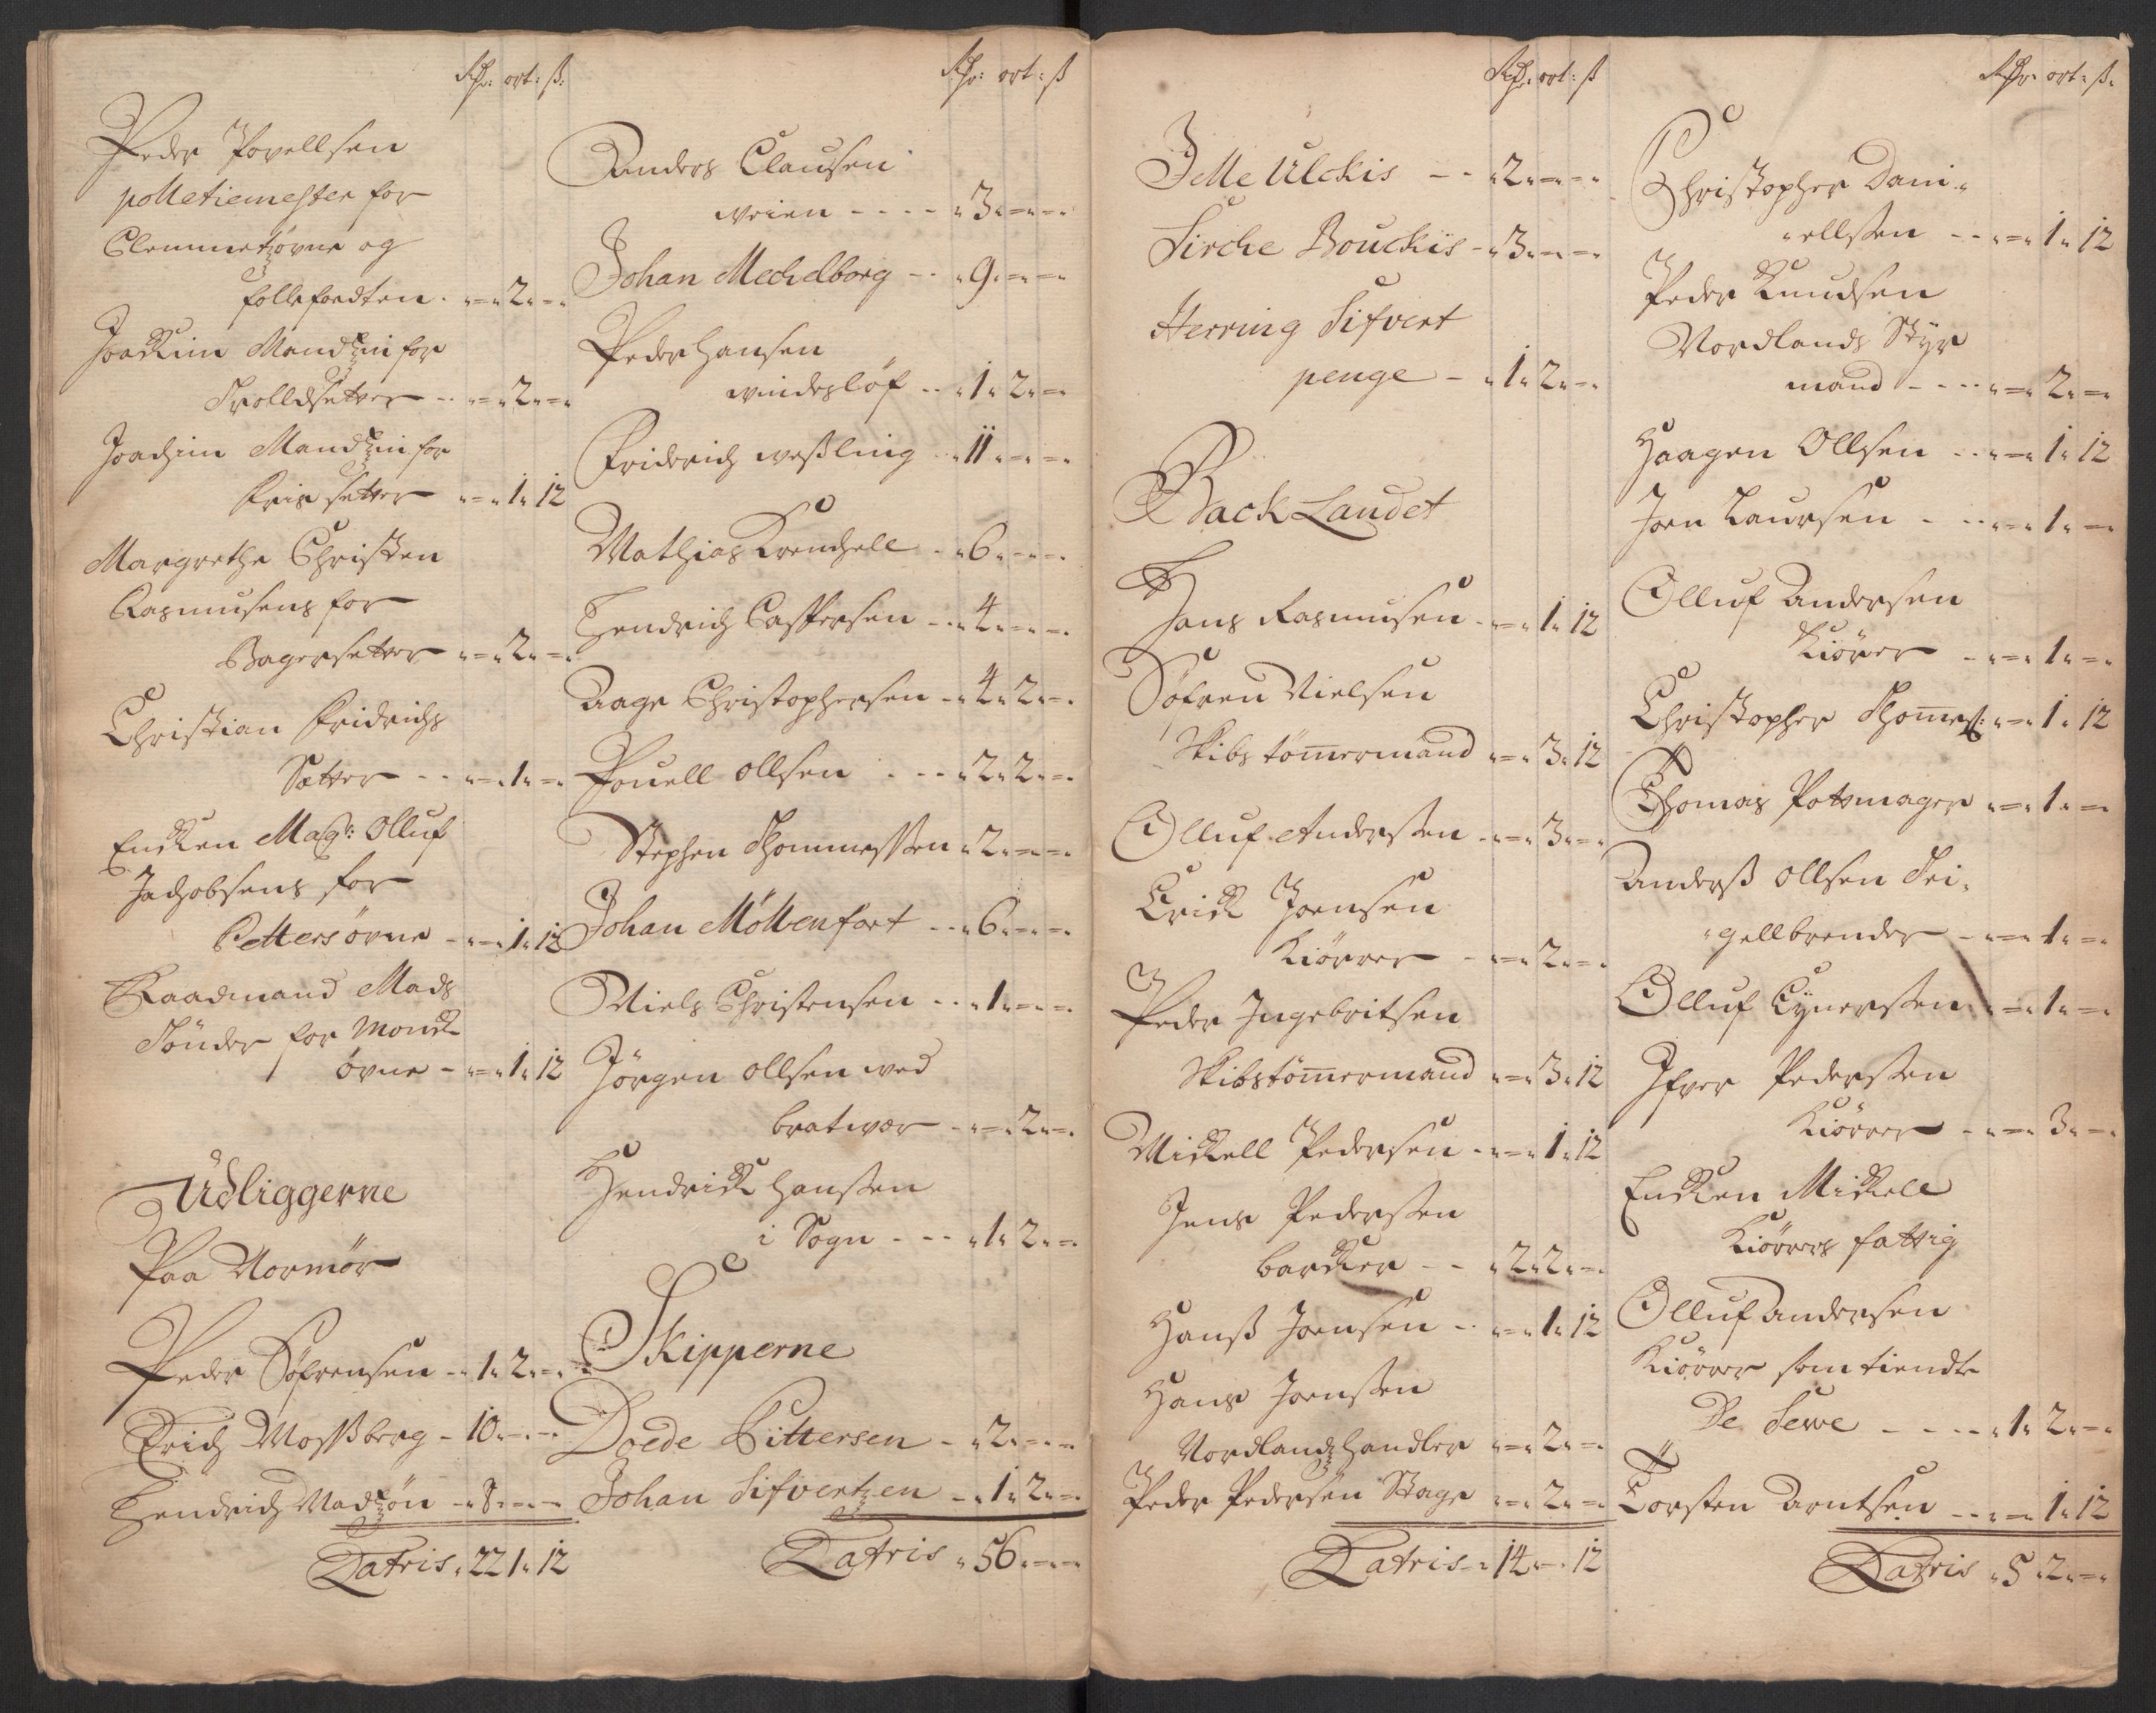 Rdr: ort: ß:
Peder Povellsen
polletiemester for
Clemmetzøvne og
follefordten . „=„ 2„ =„
Joackim Mandzin for
Trolldsetter .. „=„ 2„ =„
Joachim Mandzin for
friis setter „=„ 1„ 12
Margrethe Christen
Rasmusens for
Bagersetter „=„ 2„ =„
Christian fridrichs
Setter - - „=„ 1„ =„
Encken Magr: Olluf
Jachobsens for
Pettersøvne - „=„ 1„ 12
Raadmand Mads
Tønder for Monck
øvne - „=„ 1„ 12
Udliggerne
Paa Normør
Peder Søfrensen - „ 1„ 2„ =„
Erich Mossberg - 10„ =„ =„
Hendrich Madzøn - „ 8„ =„ =„
Latris „ 22 1„ 12
Rdr: ort: ß
Anders Clausen
weien - - - - „ 3„ =„ =„
Johan Mechelborg - - „ 9„ =„ =„
Peder hansen
windesløf .. „ 1„ 2„ =„
Friderich wessling .. „ 11„ =„ =„
Mathias Krenchell - „ 6„ =„ =„
Hendrich Caspersen - - „ 4„ =„ =„
Aage Christophersen - „ 4„ 2„ =„
Pouell ollsen . - - „ 2„ 2„ =„
Stephen Thommessen „ 2„ =„ =„
Johan Møllenfort - - „ 6„ =„ =„
Niels Christensen - - „ 1„ =„ =„
Jørgen ollsen wed
bratwær - „=„ 2„ =„
Hendrick hansen
i Sogn - - - „ 1„ 2„ =„
Skipperne
Doede Pittersen - „ 2„ =„ =„
Johan Sifvertzen - „ 1„ 2„ =„
Latris „ 56„ =„ =„
Rdr: ort: ß
Jelle Ulckis - - „ 2„ =„ =„
Sirche Bouckis - „ 3„ =„ =„
Herring Sifvert
penge - „ 1„ 2„ =„
Back Landet
Hans Rasmusen - „=„ 1„ 12
Søfren Nielsen
Skibs tømermand „=„ 3„ 12
Olluf Andersen - „=„ 3„ =„
Erick Joensen
Kiører - „=„ 2„ =„
Peder Ingebritsen
Skibstømermand „=„ 3„ 12
Mickell Pedersen - „=„ 1„ 12
Jens Pedersen
barcker - - „ 2„ 2„ =„
Hanß Joensen - - „=„ 1„ 12
Hans Joensen
Nordlandzhandler „=„ 2„ =„
Peder Pedersen Stage „=„ 2„ =„
Latris - „ 14„ =„ 12
Rdr: ort: ß:
Christopher Dani„
„ellsen - - „=„ 1„ 12
Peder Knudsen
Nordlands Styr
mand - - - „=„ 2„ =„
Haagen Ollsen - - „=„ 1„ 12
Joen Laursen - - - „=„ 1„ =„
Olluf Andersen
Kiører - „=„ 1„ =„
Christopher Thomes: „=„ 1„ 12
Thomas Pottmager „=„ 1„ =„
Anderß ollsen Tei„
„gellbrender - „=„ 1„ =„
Olluf Eynersen „=„ 1„ =„
Ifver Pedersen
Kiører - „=„ 3„ =„
Encken Mickell
Kiørers fattig
Olluf andersen
Kiører som tiendte
De Sewe - - - - „ 1„ 2„ =„
Torsten Arntsen - - „=„ 1„ 12
Latris „ 5„ 2„ =„